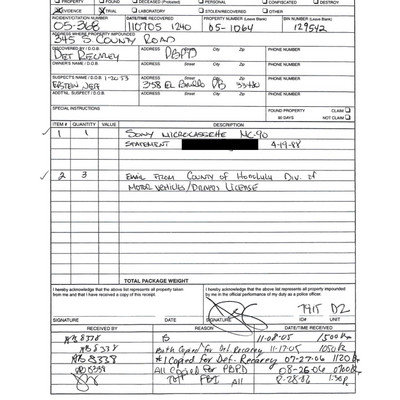 ☐ PROPERTY ☐ FOUND ☐ DECEASED (Probated) ☐ PERSONAL ☐ CONFISCATED ☐ DESTROY
☒ EVIDENCE ☒ TRIAL ☐ LABORATORY ☐ STOLEN/RECOVERED ☐ OTHER
INCIDENT/CITATION NUMBER DATE/TIME RECOVERED PROPERTY (Leave Blank) BIN NUMBER (Leave Blank)
05-368 110705 1240 05-1064 129542
ADDRESS WHERE PROPERTY IMPOUNDED
345 S. COUNTY ROAD
DISCOVERED BY / D.O.B. ADDRESS City State Zip PHONE NUMBER
DET RECAREY PBPD
OWNER'S NAME / D.O.B. ADDRESS City State Zip PHONE NUMBER
SUSPECTS NAME / D.O.B. 1-20-53 ADDRESS City State Zip PHONE NUMBER
EPSTEIN, JEFF 358 EL BRILLO PB 33480
ADDT'NL SUSPECT / D.O.B. ADDRESS City State Zip PHONE NUMBER
SPECIAL INSTRUCTIONS FOUND PROPERTY CLAIM ☐
90 DAYS NOT CLAIM ☐
ITEM # QUANTITY VALUE DESCRIPTION
1 1 SONY MICROCASSETTE MC-90
STATEMENT 4-19-88
2 3 EMAIL FROM COUNTY OF HONOLULU DIV. OF
MOTOR VEHICLES/DRIVERS LICENSE
TOTAL PACKAGE WEIGHT
I hereby acknowledge that the above list represents all property taken
from me and that I have received a copy of this receipt.
I hereby acknowledge that the above list represents all property impounded
by me in the official performance of my duty as a police officer.
7415 D2
SIGNATURE DATE SIGNATURE ID# UNIT
RECEIVED BY REASON DATE/TIME RECEIVED
11-08-05 1500hrs
Copied for Det. Recarey 11-17-05 1050hr
#1 Copied for Det. Recarey 07-27-06 1120hr
All Copied for PBPD 08-26-06
FBI All